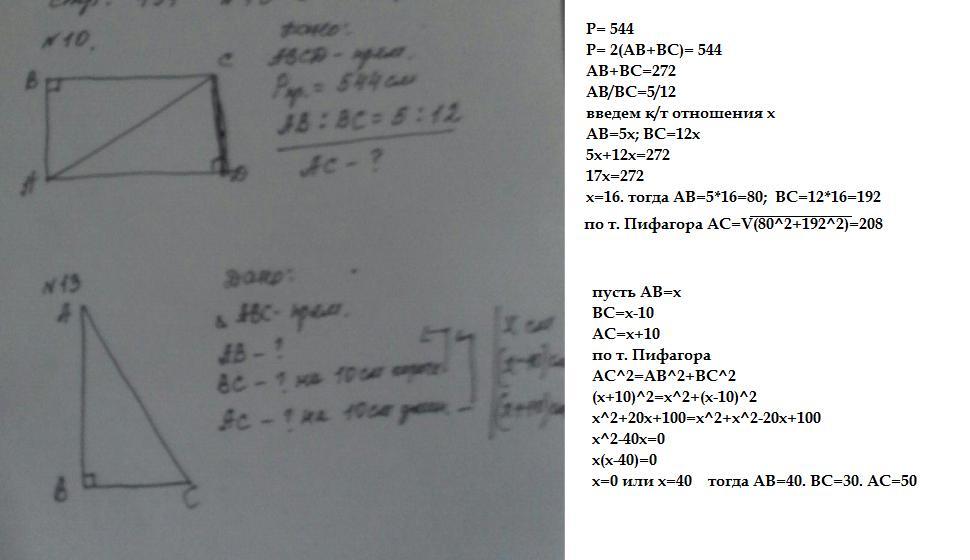 №10.
Дано:
ABCD - прям.
Pпр. = 544 см
AB : BC = 5 : 12
AC - ?
B
C
A
D
№13
Дано:
ABC - прям.
AB - ?
BC - ? на 10 см
AC - ? на 10 см
x см
A
B
C
P= 544
P= 2(AB+BC)= 544
AB+BC=272
AB/BC=5/12
введем к/т отношения x
AB=5x; BC=12x
5x+12x=272
17x=272
x=16. тогда AB=5*16=80; BC=12*16=192
по т. Пифагора AC=V(80^2+192^2)=208
пусть AB=x
BC=x-10
AC=x+10
по т. Пифагора
AC^2=AB^2+BC^2
(x+10)^2=x^2+(x-10)^2
x^2+20x+100=x^2+x^2-20x+100
x^2-40x=0
x(x-40)=0
x=0 или x=40 тогда AB=40. BC=30. AC=50